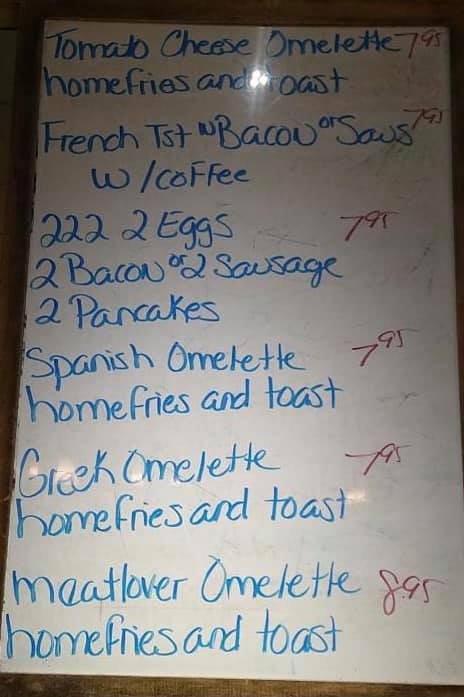 Tomato Cheese Omelette 7.95
homefries and toast
French Tst w Bacon or Saus 7.95
w/coffee
222 2 Eggs 7.95
2 Bacon or 2 Sausage
2 Pancakes
Spanish Omelette 7.95
homefries and toast
Greek Omelette 7.95
homefries and toast
meatlover Omelette 8.95
homefries and toast